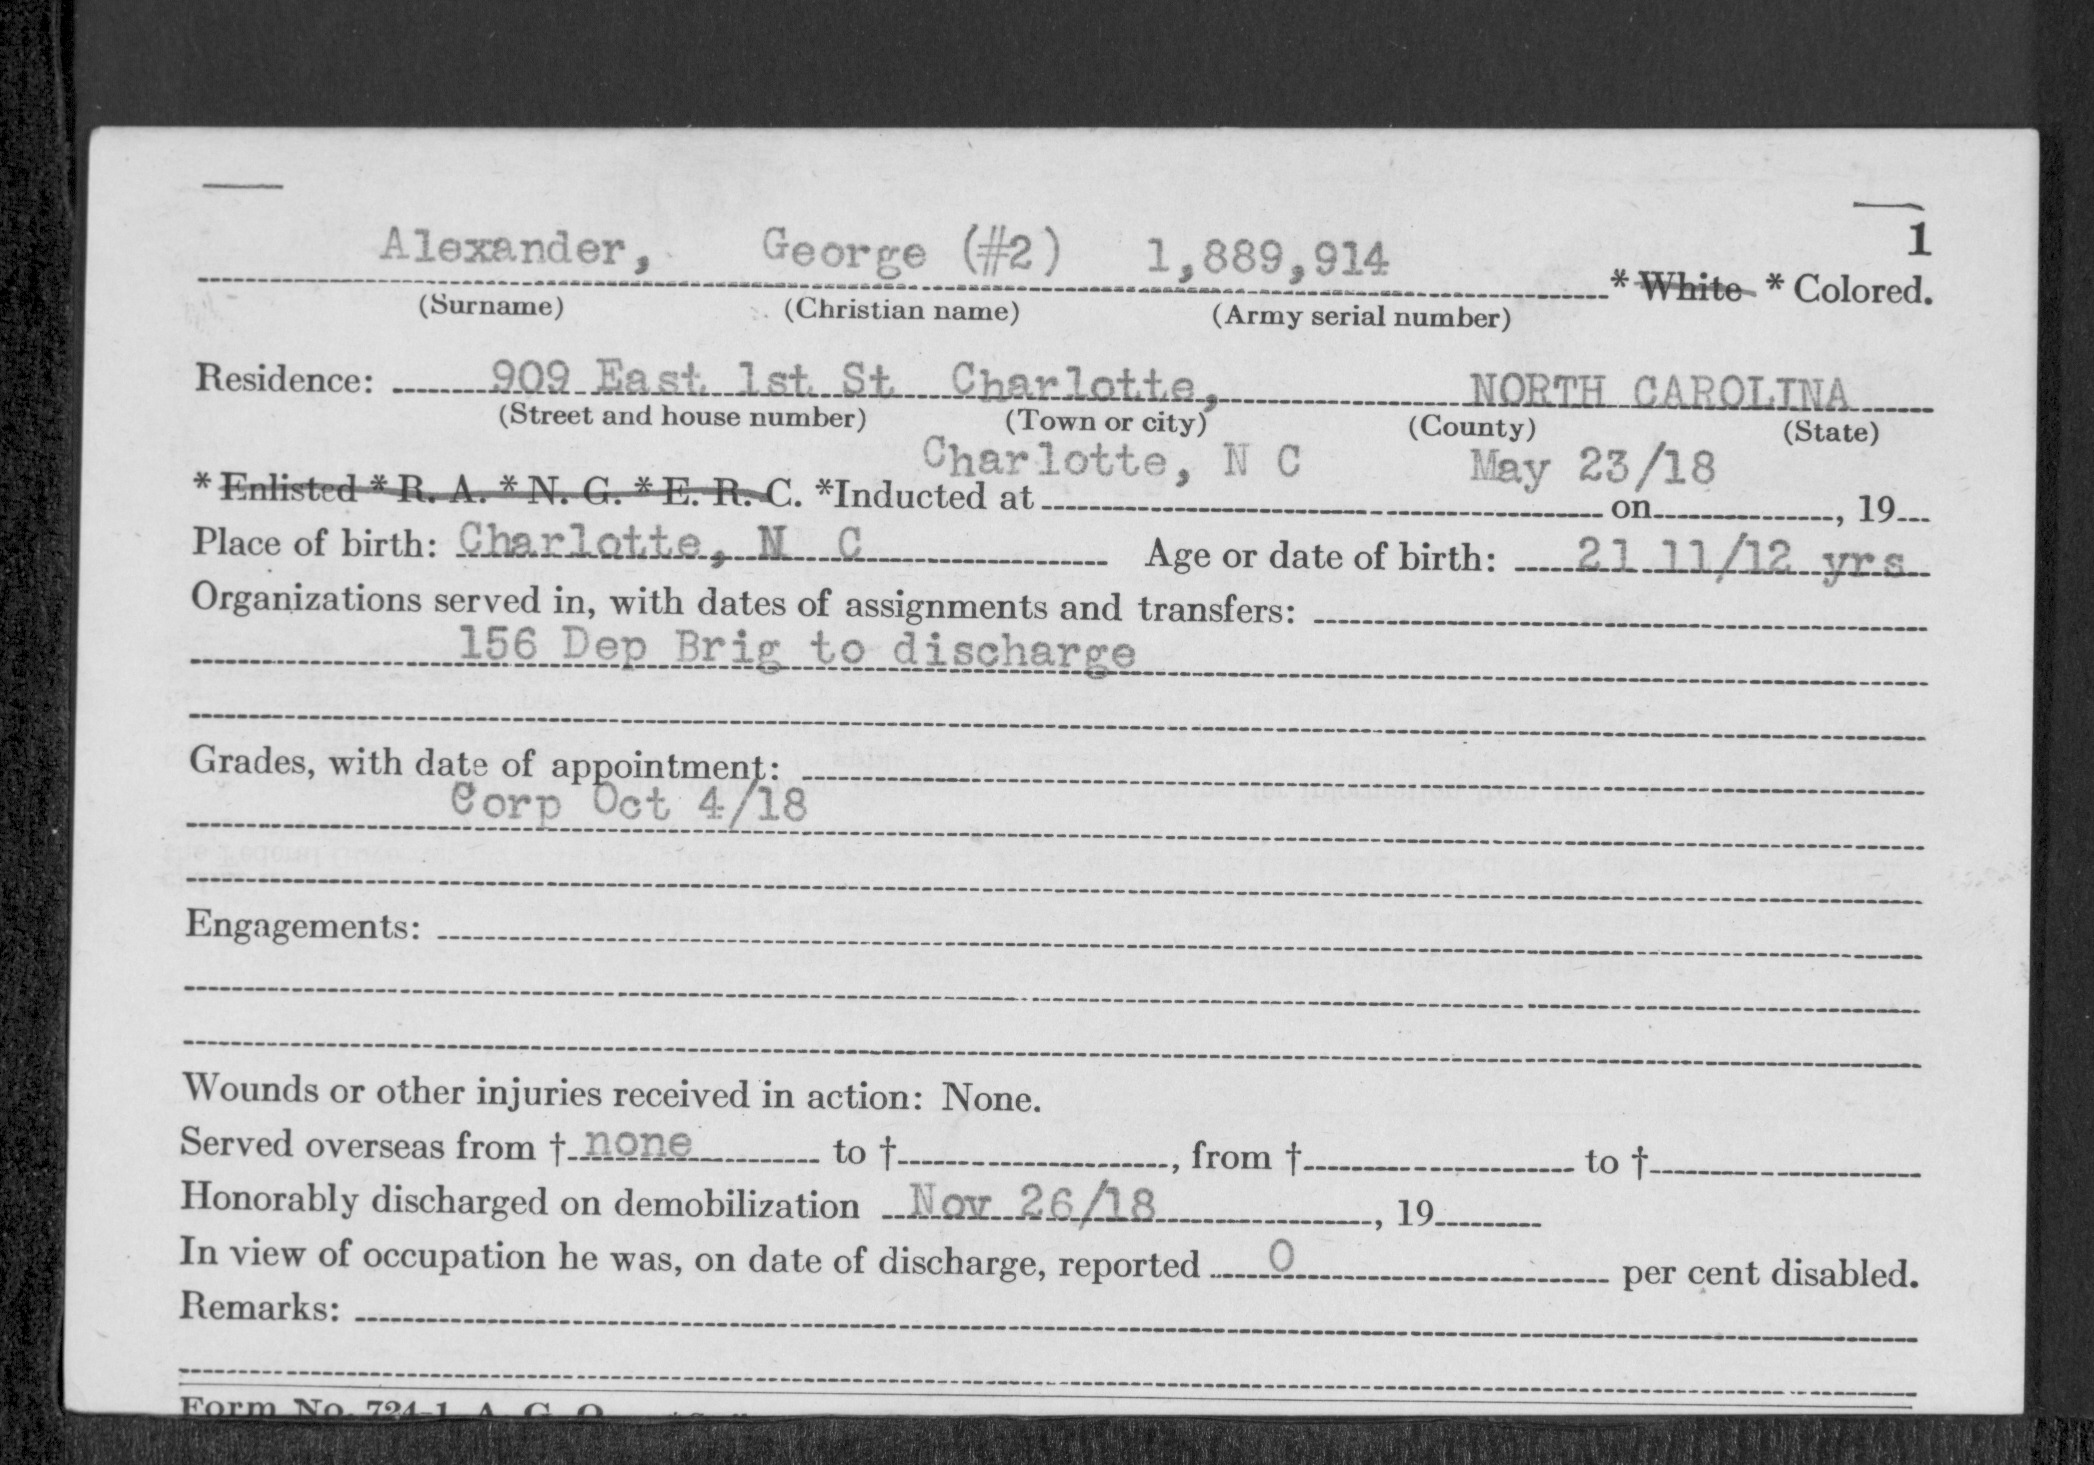 1
Alexander, George (#2) 1,889,914 * White * Colored.
(Surname) (Christian name) (Army serial number)
Residence: 909 East 1st St Charlotte, NORTH CAROLINA
(Street and house number) (Town or city) (County) (State)
Charlotte, N C May 23/18
* Enlisted * R. A. * N. G. * E. R. C. *Inducted at on , 19
Place of birth: Charlotte, N C Age or date of birth: 21 11/12 yrs
Organizations served in, with dates of assignments and transfers:
156 Dep Brig to discharge
Grades, with date of appointment:
Corp Oct 4/18
Engagements:
Wounds or other injuries received in action: None.
Served overseas from † none to † , from † to †
Honorably discharged on demobilization Nov 26/18 , 19
In view of occupation he was, on date of discharge, reported 0 per cent disabled.
Remarks:
Form No. 724-1, A. G. O.